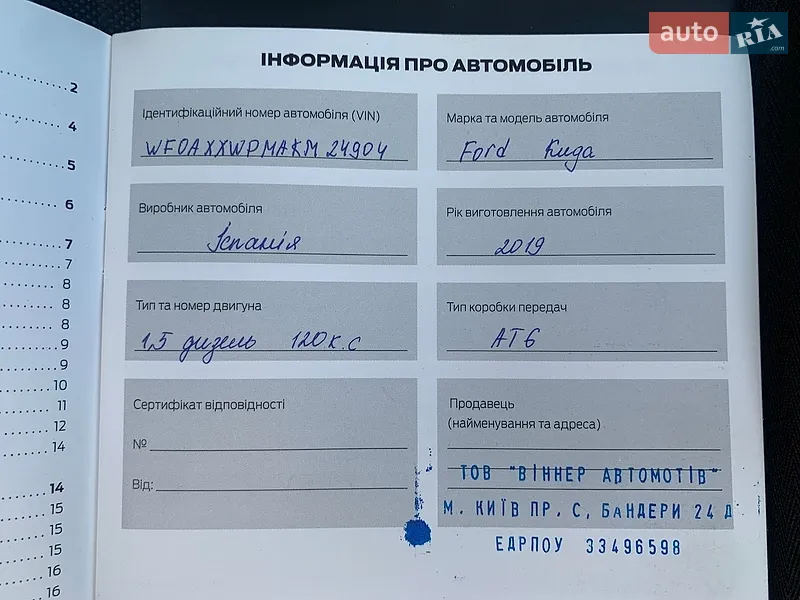 auto RIA .com
2
4
5
6
7
7
8
8
8
9
9
10
11
12
14
14
15
15
15
16
16
ІНФОРМАЦІЯ ПРО АВТОМОБІЛЬ
Ідентифікаційний номер автомобіля (VIN)
WF0AXXWPMAKM24904
Марка та модель автомобіля
Ford Куда
Виробник автомобіля
Іспанія
Рік виготовлення автомобіля
2019
Тип та номер двигуна
1,5 дизель 120 к.с
Тип коробки передач
АТ6
Сертифікат відповідності
№
Від:
Продавець
(найменування та адреса)
ТОВ "ВІННЕР АВТОМОТІВ"
М. КИЇВ ПР. С, БаНДЕРИ 24 Д
ЕДРПОУ 33496598